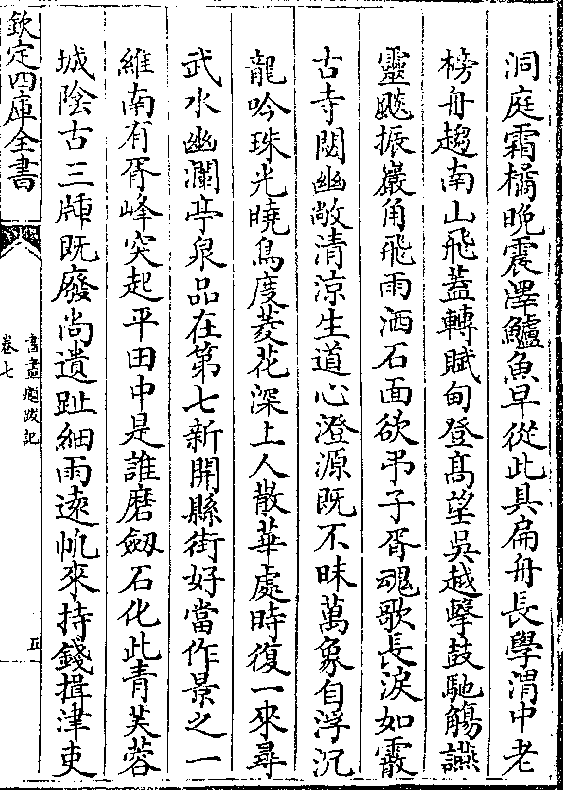 洞庭霜橘晚震澤鱸魚早從此具扁舟長學渭中老
榜舟趨南山飛蓋轉賦甸登髙望吳越擊鼓馳觴讌
靈飈振巖角飛雨洒石面欲弔子胥魂歌長淚如霰
古寺閟幽敞清涼生道心澄源既不昧萬象自浮沉
龍吟珠光曉鳥度菱花深上人散華處時復一來尋
武水幽瀾亭泉品在第七新開縣街好當作景之一
維南有胥峰突起平田中是誰磨劔石化此青芙蓉
城陰古三牐既廢尚遺趾細雨遠帆來持錢揖津吏
欽定四庫全書
書畫題跋記
卷七
五